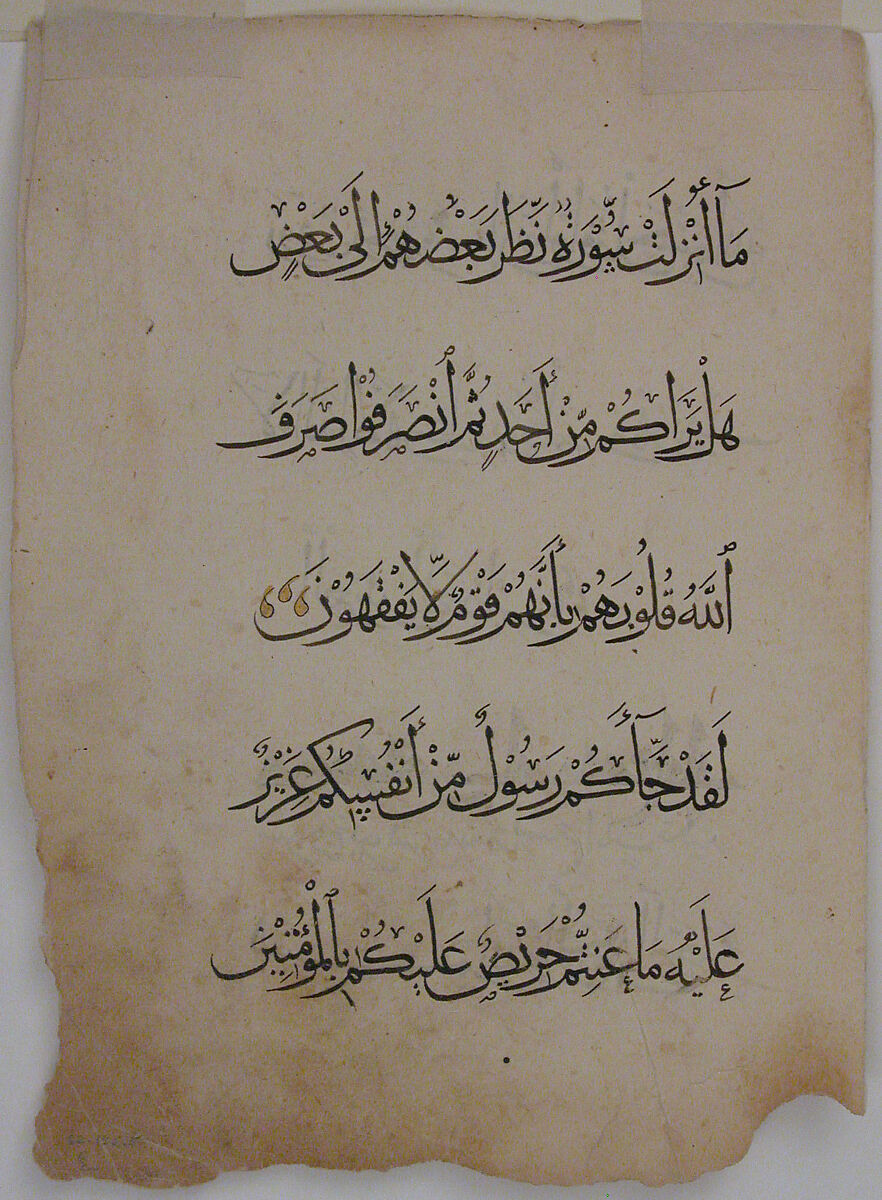 مَآ أُنْزِلَتْ سُوْرَةٌ نَّظَرَ بَعْضُهُمْ إِلَىٰ بَعْضٍ
هَلْ يَرَاكُمْ مِّنْ أَحَدٍ ثُمَّ ٱنْصَرَفُوْا صَرَفَ
ٱللَّهُ قُلُوْبَهُمْ بِأَنَّهُمْ قَوْمٌ لَّا يَفْقَهُوْنَ
لَقَدْ جَآءَكُمْ رَسُوْلٌ مِّنْ أَنْفُسِكُمْ عَزِيْزٌ
عَلَيْهِ مَا عَنِتُّمْ حَرِيْصٌ عَلَيْكُمْ بِٱلْمُؤْمِنِيْنَ